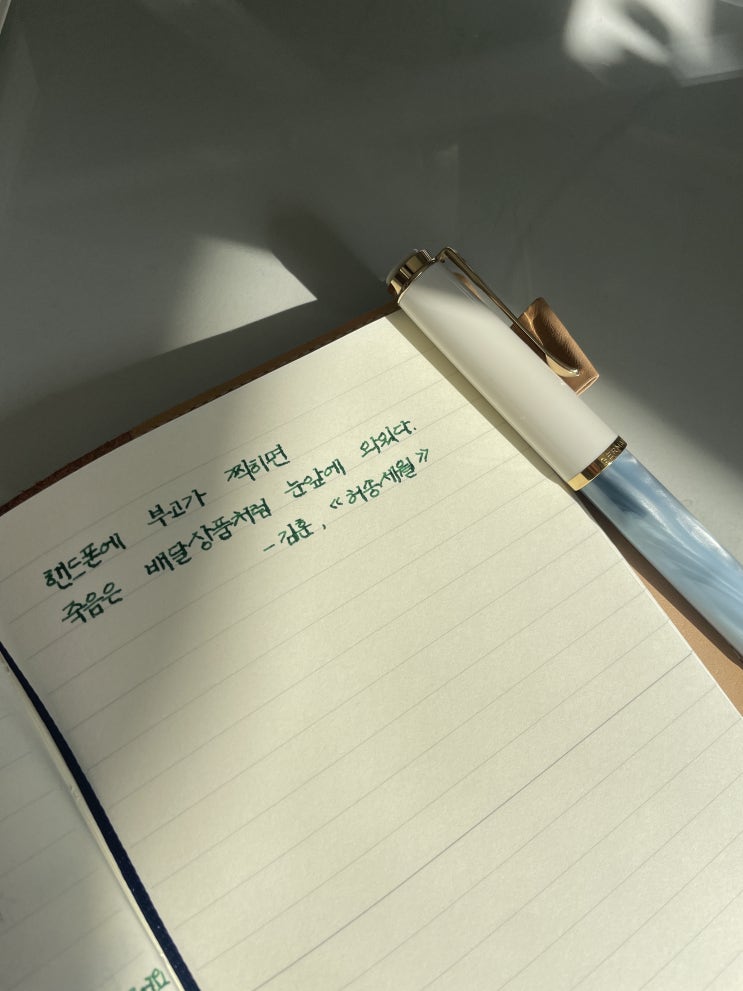 핸드폰에 부고가 찍히면
죽음은 배달상품처럼 눈앞에 와있다.
- 김훈, 《허송세월》